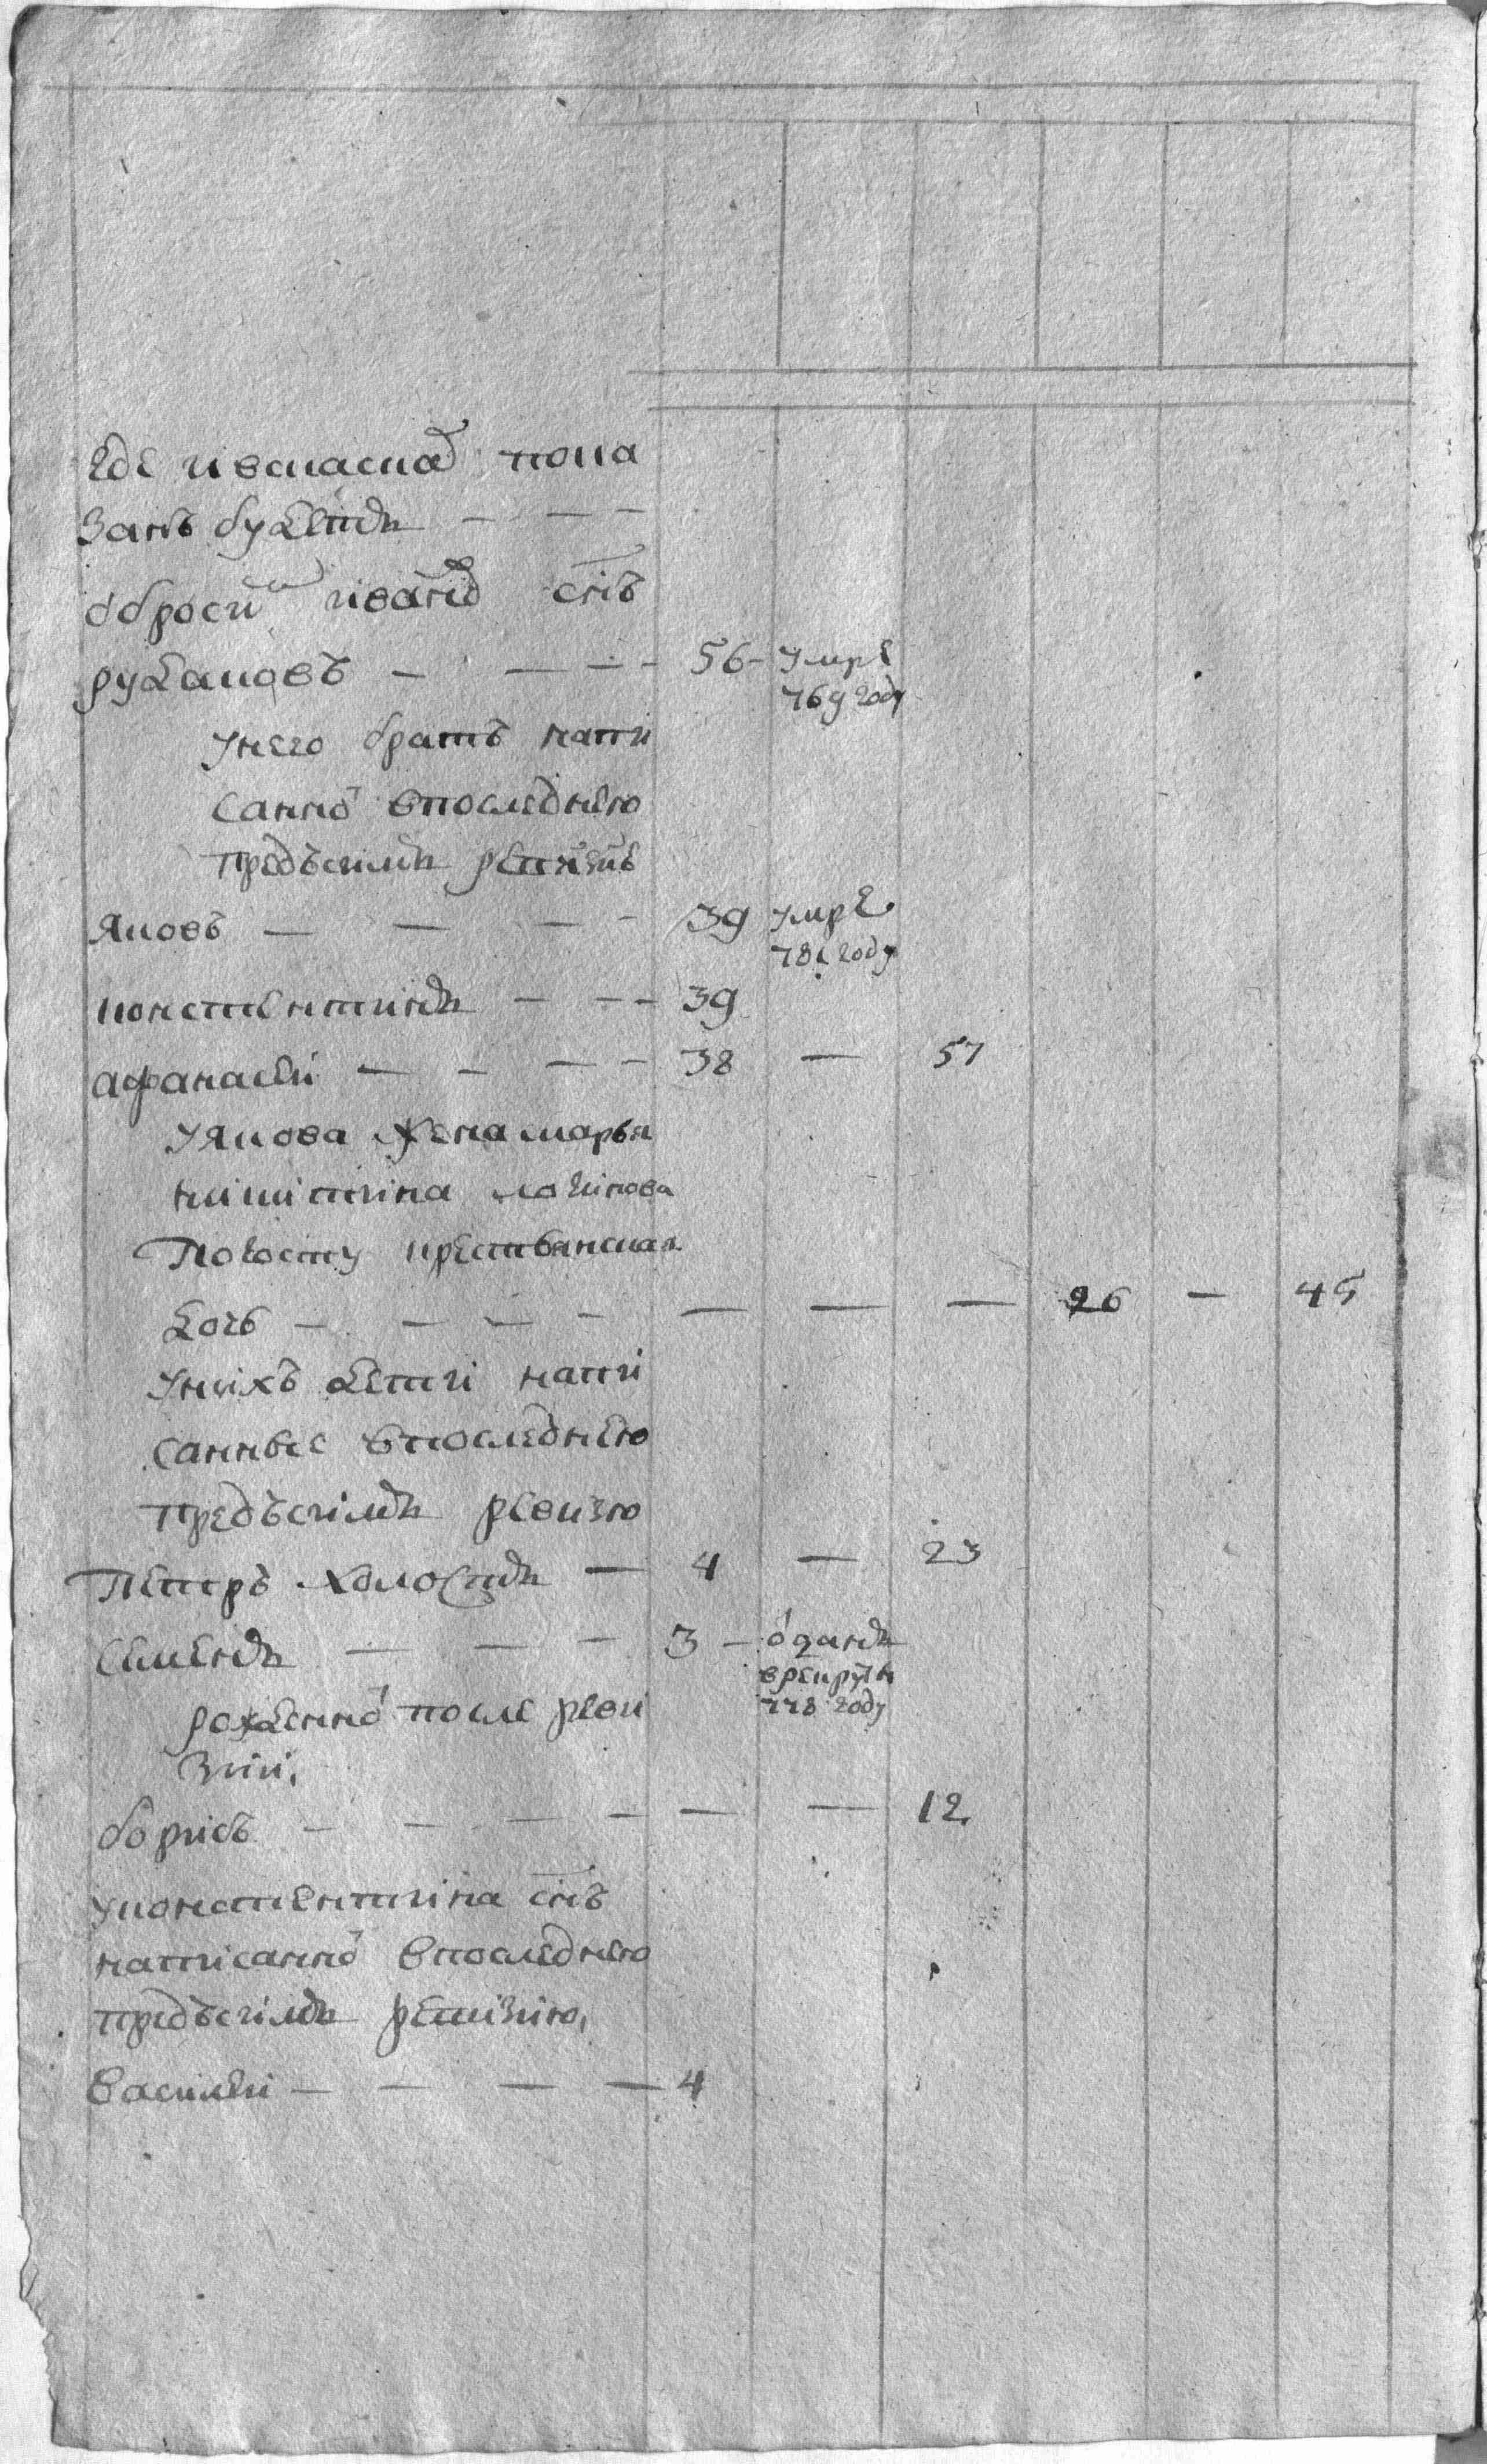 где и вскаской пока
занъ будетъ — — —
обросим иванов снъ
рукаповъ — — — — 56 - умре
769 году
унего братъ напи
санно впоследнею
предъсимъ ревизию
Яковъ — — — — 39 умре
781 году
констентинъ — — — 39
афанасеи — — — — 38 — 57
уякова жена марья
никитина
погосту крестьянская
дочь — — — — — — — 26 — 45
унихъ дети напи
санные впоследнею
предъсимъ ревизию
Петръ холостъ — 4 — 23
Семенъ — — — 3 — отданъ
врекруты
778 году
рожденно после реви
зии,
борисъ — — — — — — 12
уконстентина снъ
написанно впоследнею
предъсимъ ревизию,
василеи — — — — 4